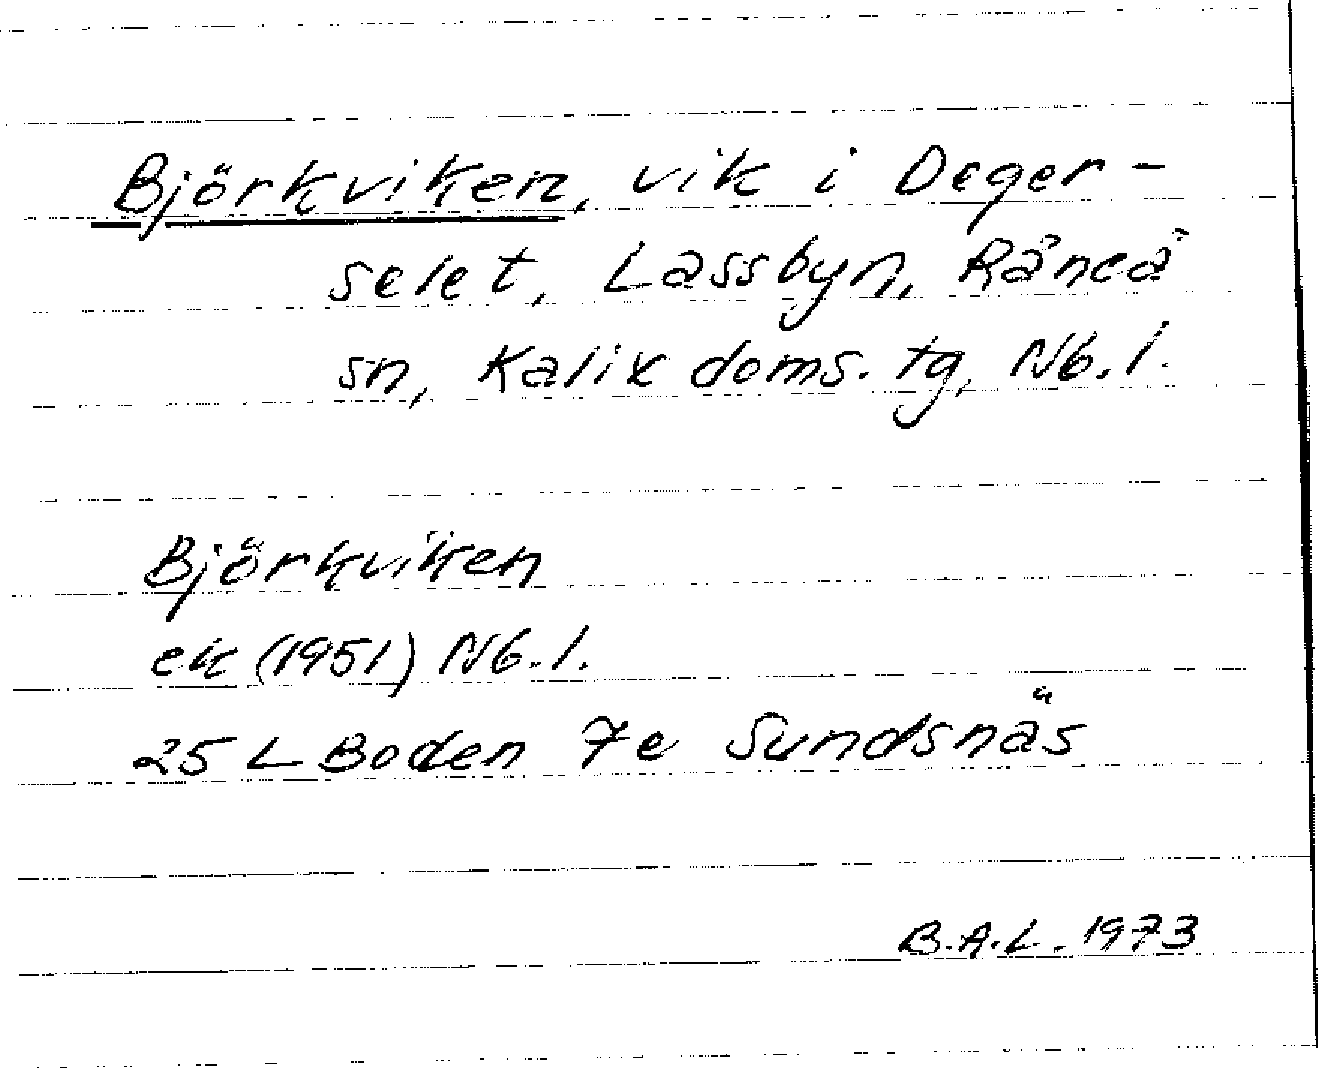 Björkviken, vik i Deger-
selet, Lassbyn, Råneå
sn, Kalix doms. tg, Nb. l.
Björkviken
ek (1951) Nb. l.
25 L Boden 7e Sundsnäs
B.A.L. 1973